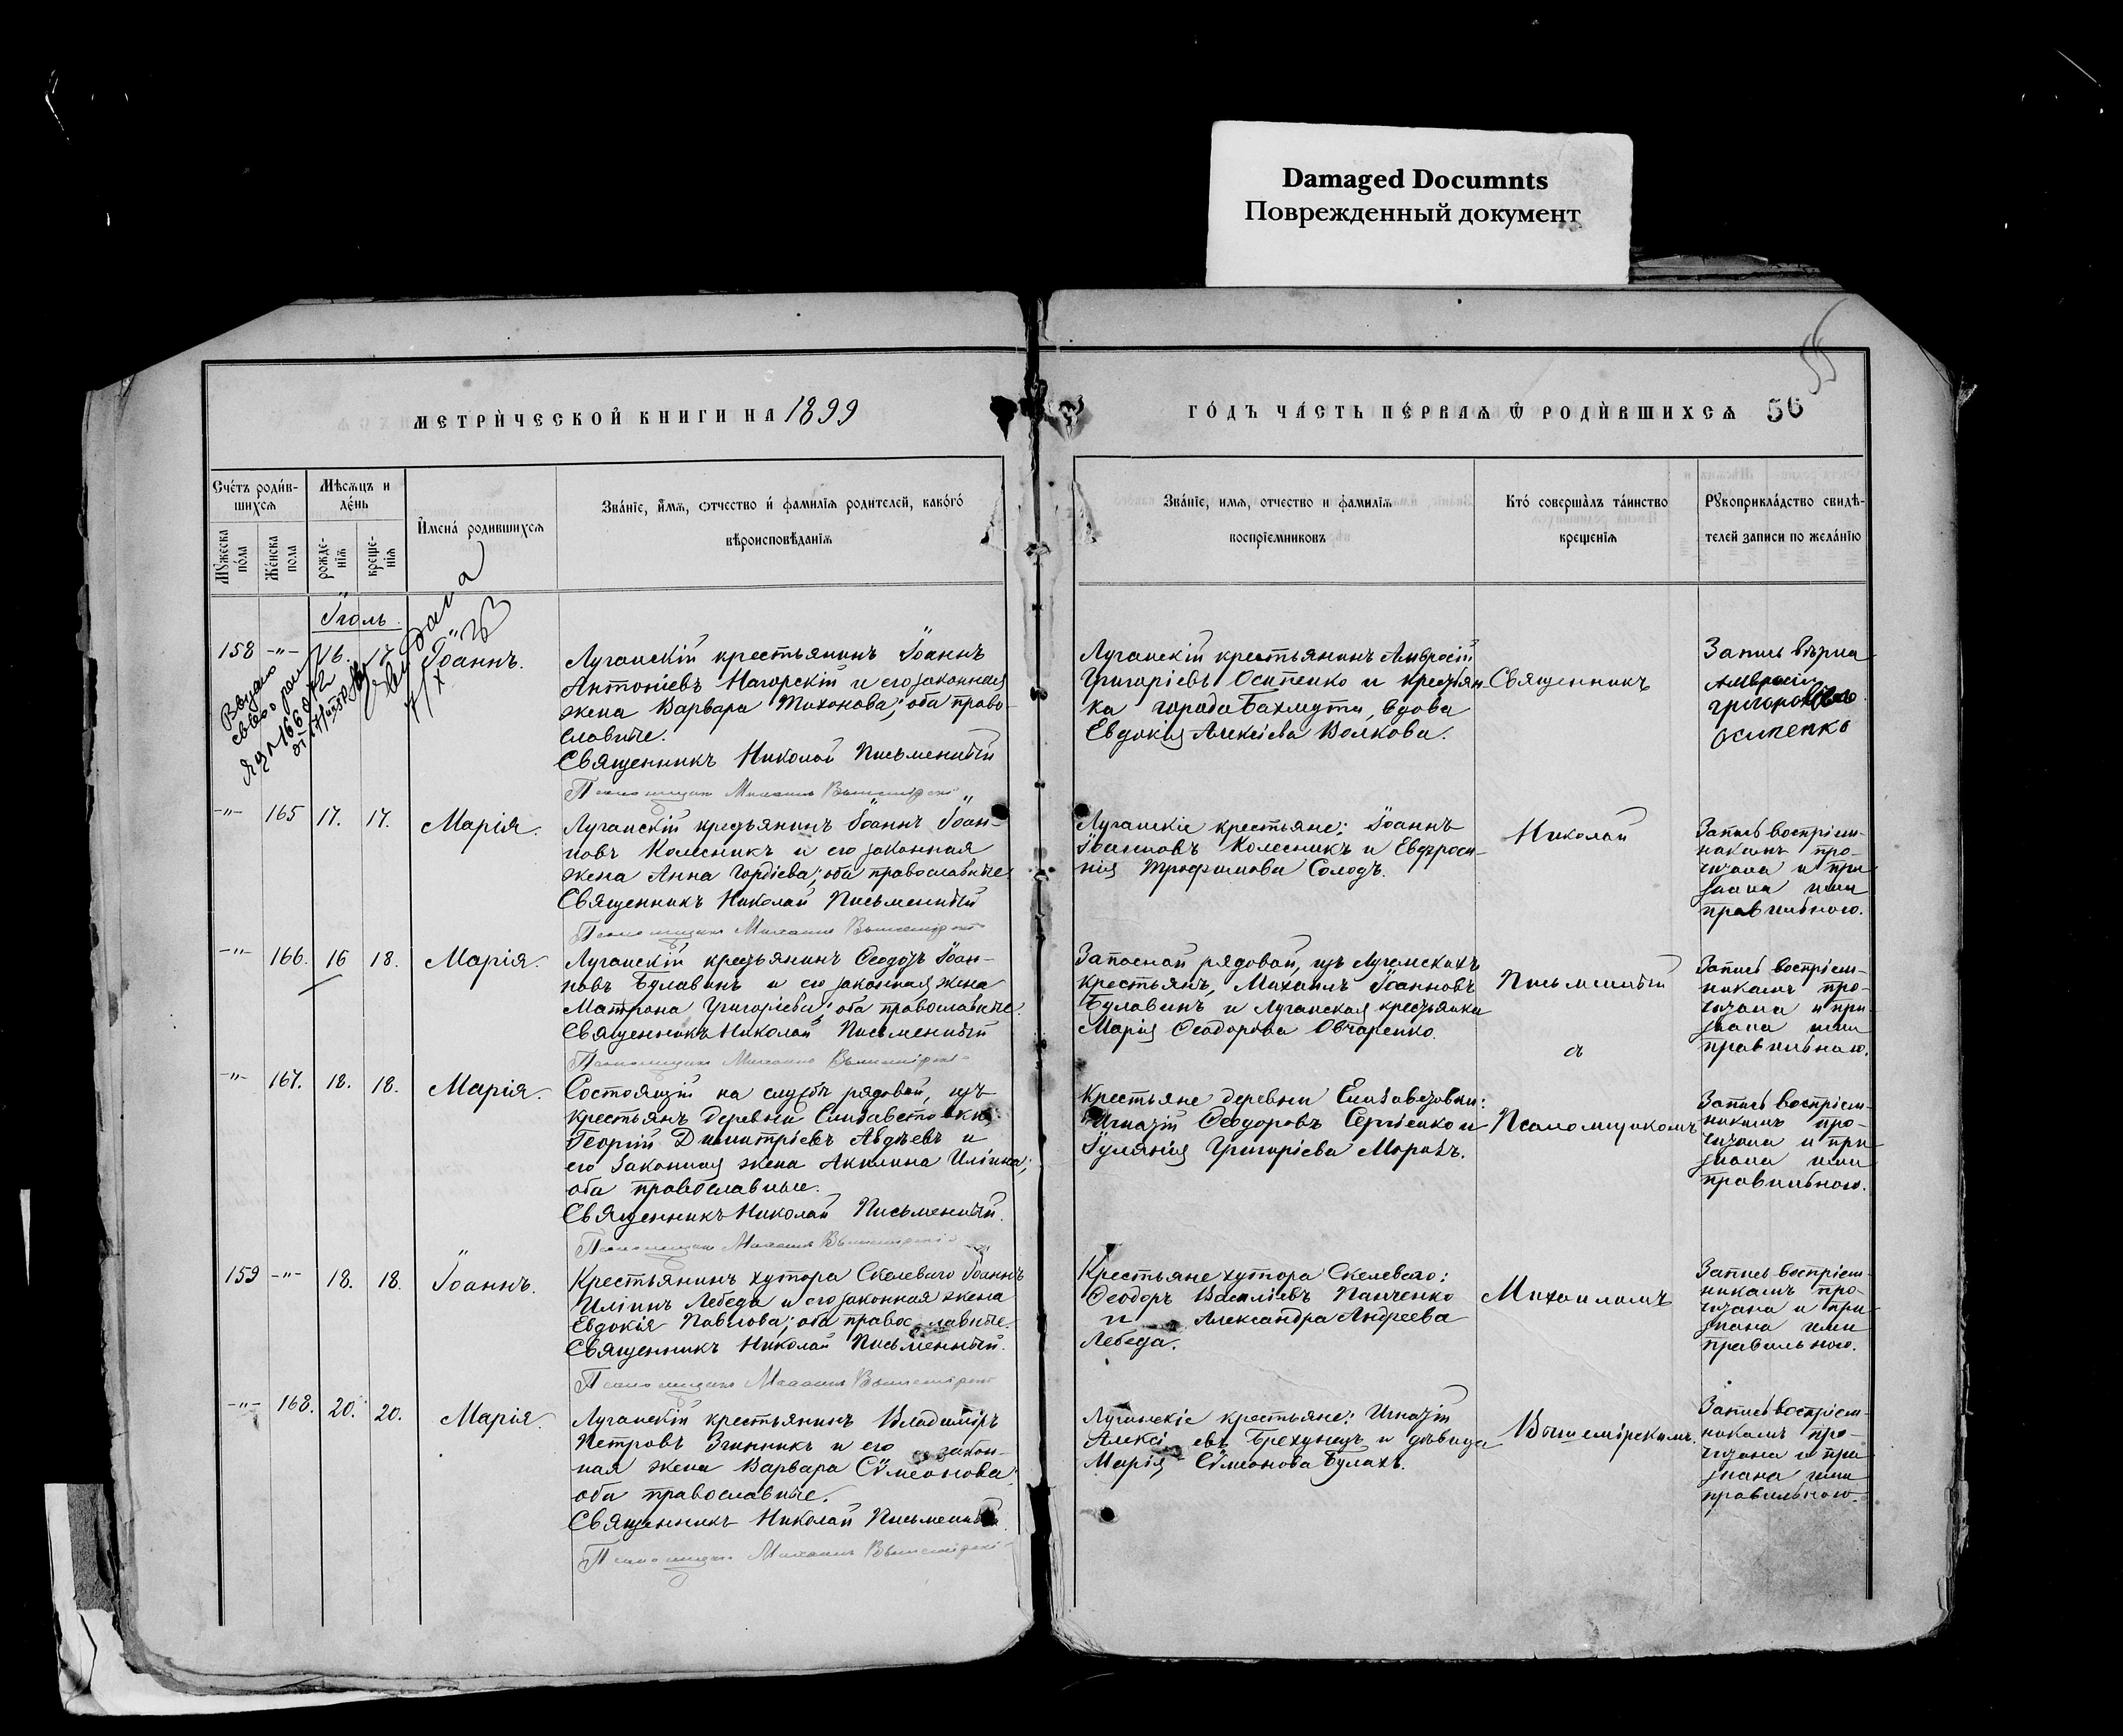 Damaged Documnts
Поврежденный документ
55
МЕТРИ́ЧЕСКОЙ КНИГИ НА 1899
ГО́ДЪ ЧА́СТЬ ПЕ́РВАѦ Ѿ РОДИ́ВШИХСѦ 56
Сче́тъ роди́в-
шихсѧ
Мꙋ́жеска по́ла
Же́нска пола
Мѣсѧцъ и
де́нь
рожде-
нїѧ
креще-
нїѧ
И҆мена̀ родившихсѧ
Зва́нїе, и҆́мѧ, ѻтчество и҆ фамилїѧ родителей, како́гѡ
вѣроисповѣданїѧ
Зва́нїе, имѧ, отчество и фамилїѧ
воспрїемниковъ
Кто̀ соверша̀лъ та́инство
крещенїѧ
Рꙋкоприкла́дство свидѣ-
телей записи по жела́нїю
Іюль.
158 -"- 16. 17. Іоаннъ.
Луганскій крестьянинъ Іоаннъ
Антоніевъ Нагорскій и его законная
жена Варвара Тихонова; оба право-
славные.
Священникъ Николай Письменный
Псаломщикъ Михаилъ Вышемірскій
Луганскій крестьянинъ Амвросій
Григоріевъ Осипенко и крестьян-
ка города Бахмута, вдова
Евдокія Алексіева Волкова.
Священникъ
Запись вѣрна
Амвросій
осипенко
-"- 165 17. 17. Марія.
Луганскій крестьянинъ Іоаннъ Іоан-
новъ Колесникъ и его законная
жена Анна Гордіева; оба православные
Священникъ Николай Письменный
Псаломщикъ Михаилъ Вышемірскій
Луганскіе крестьяне: Іоаннъ
Іоанновъ Колесникъ и Евфроси-
нія Трофимова Солодъ.
Николай
Запись воспріем-
никамъ про-
читана и при
знана ими
правильною.
-"- 166. 16 18. Марія.
Луганскій крестьянинъ Ѳеодотъ Іоан-
новъ Булавинъ и его законная жена
Матрона Григоріева; оба православные.
Священникъ Николай Письменный
Псаломщикъ Михаилъ Вышемірскій
Запасной рядовой, изъ Луганскихъ
крестьянъ, Михаилъ Іоанновъ
Булавинъ и Луганская крестьянка
Марія Ѳеодорова Овчаренко.
Письменный
съ
Запись воспріем-
никамъ про-
читана и при-
знана ими
правильною.
-"- 167. 18. 18. Марія.
Состоящій на службѣ рядовой, изъ
крестьянъ деревни Елисаветовки,
Георгій Димитріевъ Авдѣевъ и
его законная жена Акилина Иліина;
оба православные.
Священникъ Николай Письменный.
Псаломщикъ Михаилъ Вышемірскій
Крестьяне деревни Елизаветовки:
Игнатій Ѳеодоровъ Сергіенко и
Іуліанія Григоріева Морозъ.
Псаломщикомъ
Запись воспріем-
никамъ про-
читана и при
знана ими
правильною.
159 -"- 18. 18. Іоаннъ.
Крестьянинъ хутора Скелеваго Іоаннъ
Иліинъ Лебеда и его законная жена
Евдокія Павлова; оба православные.
Священникъ Николай Письменный.
Псаломщикъ Михаилъ Вышемірскій
Крестьяне хутора Скелеваго:
Ѳеодоръ Василіевъ Панченко
и Александра Андреева
Лебеда.
Михаиломъ
Запись воспріем-
никамъ про-
читана и при
знана ими
правильною.
-"- 168. 20. 20. Марія.
Луганскій крестьянинъ Владиміръ
Петровъ Згинникъ и его закон-
ная жена Варвара Сѵмеонова
оба православные.
Священникъ Николай Письменный
Псаломщикъ Михаилъ Вышемірскій
Луганскіе крестьяне: Игнатій
Алексіевъ Брехунецъ и дѣвица
Марія Сѵмеонова Булахъ.
Вышемірскимъ.
Запись воспріем-
никамъ про-
читана и при
знана ими
правильною.